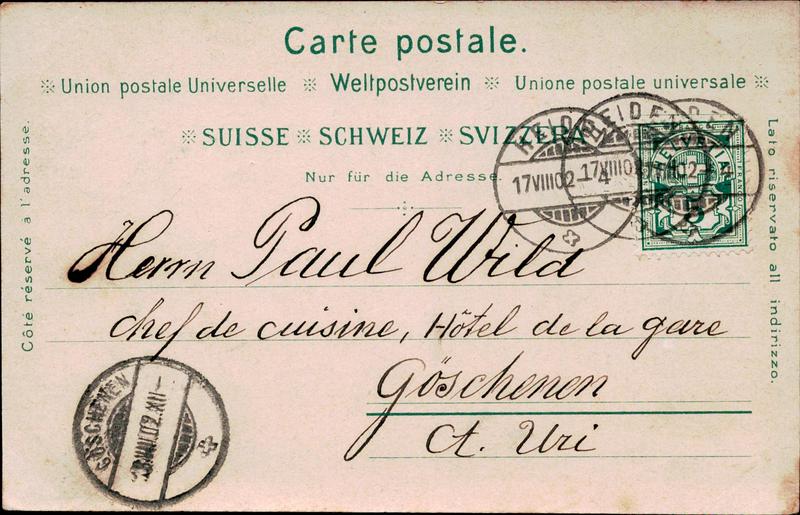 Carte postale.
Union postale Universelle Weltpostverein Unione postale universale
SUISSE SCHWEIZ SVIZZERA
Nur für die Adresse.
Côté réservé à l'adresse.
Lato riservato all indirizzo.
HEIDEN
17VIII02-4
HEIDEN
17VIII02
HELVETIA
FRANCO
5
Herrn Paul Wild
chef de cuisine, Hôtel de la gare
Göschenen
Ct. Uri
GÖSCHENEN
VIII.02.XII-